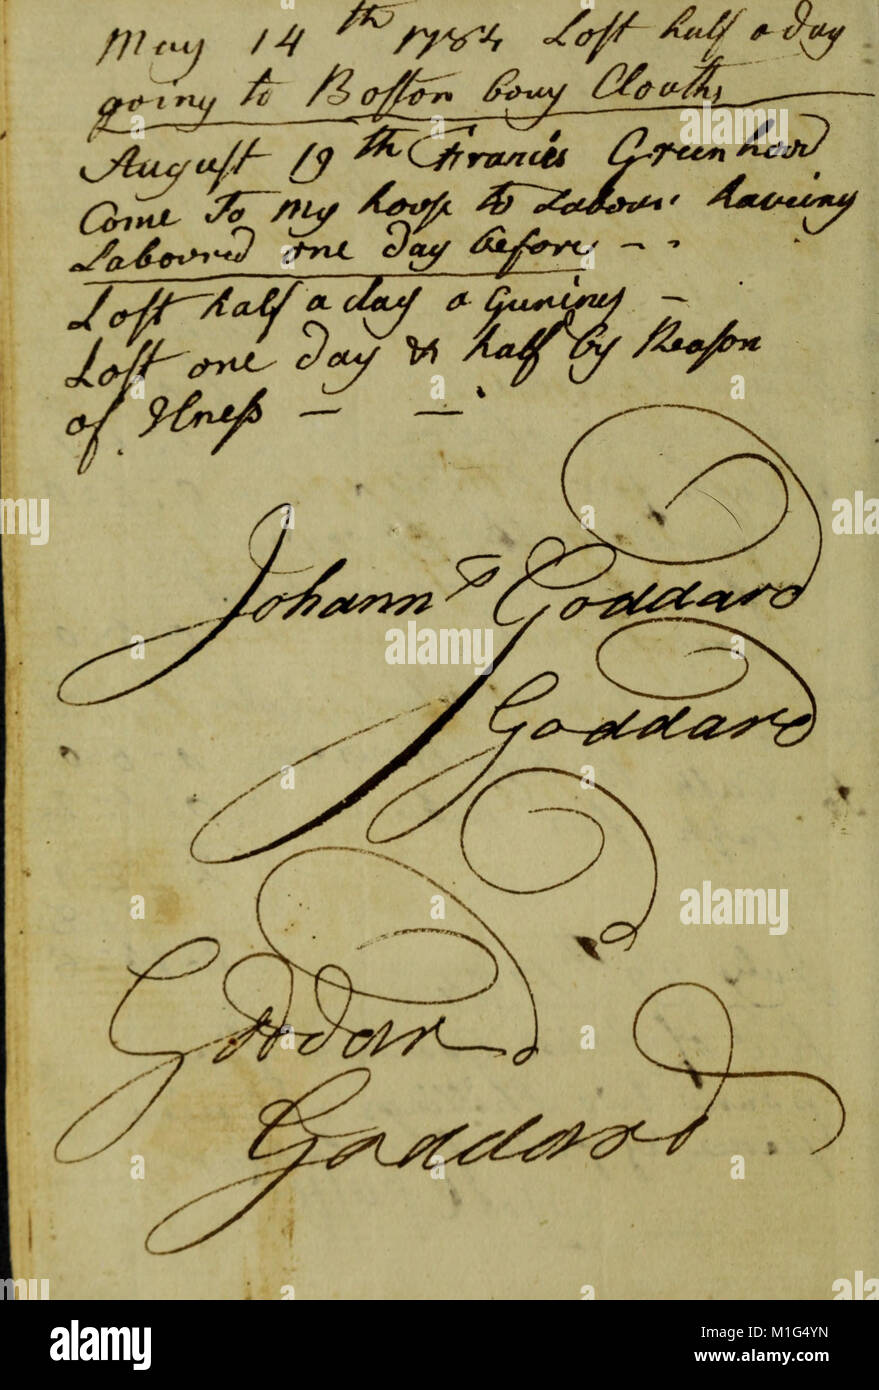 May 14th 1784 Lost half a day
going to Boston bouy Clouths
August 19th Francis Greenhood
Come To my hoose to Labour haveing
Laboured one day before - -
Lost half a day a Guning -
Lost one day & half by Reason
of Ilness — —
Johann s Goddard
Goddard
Goddard
Goddard
alamy
Image ID: M1G4YN
www.alamy.com